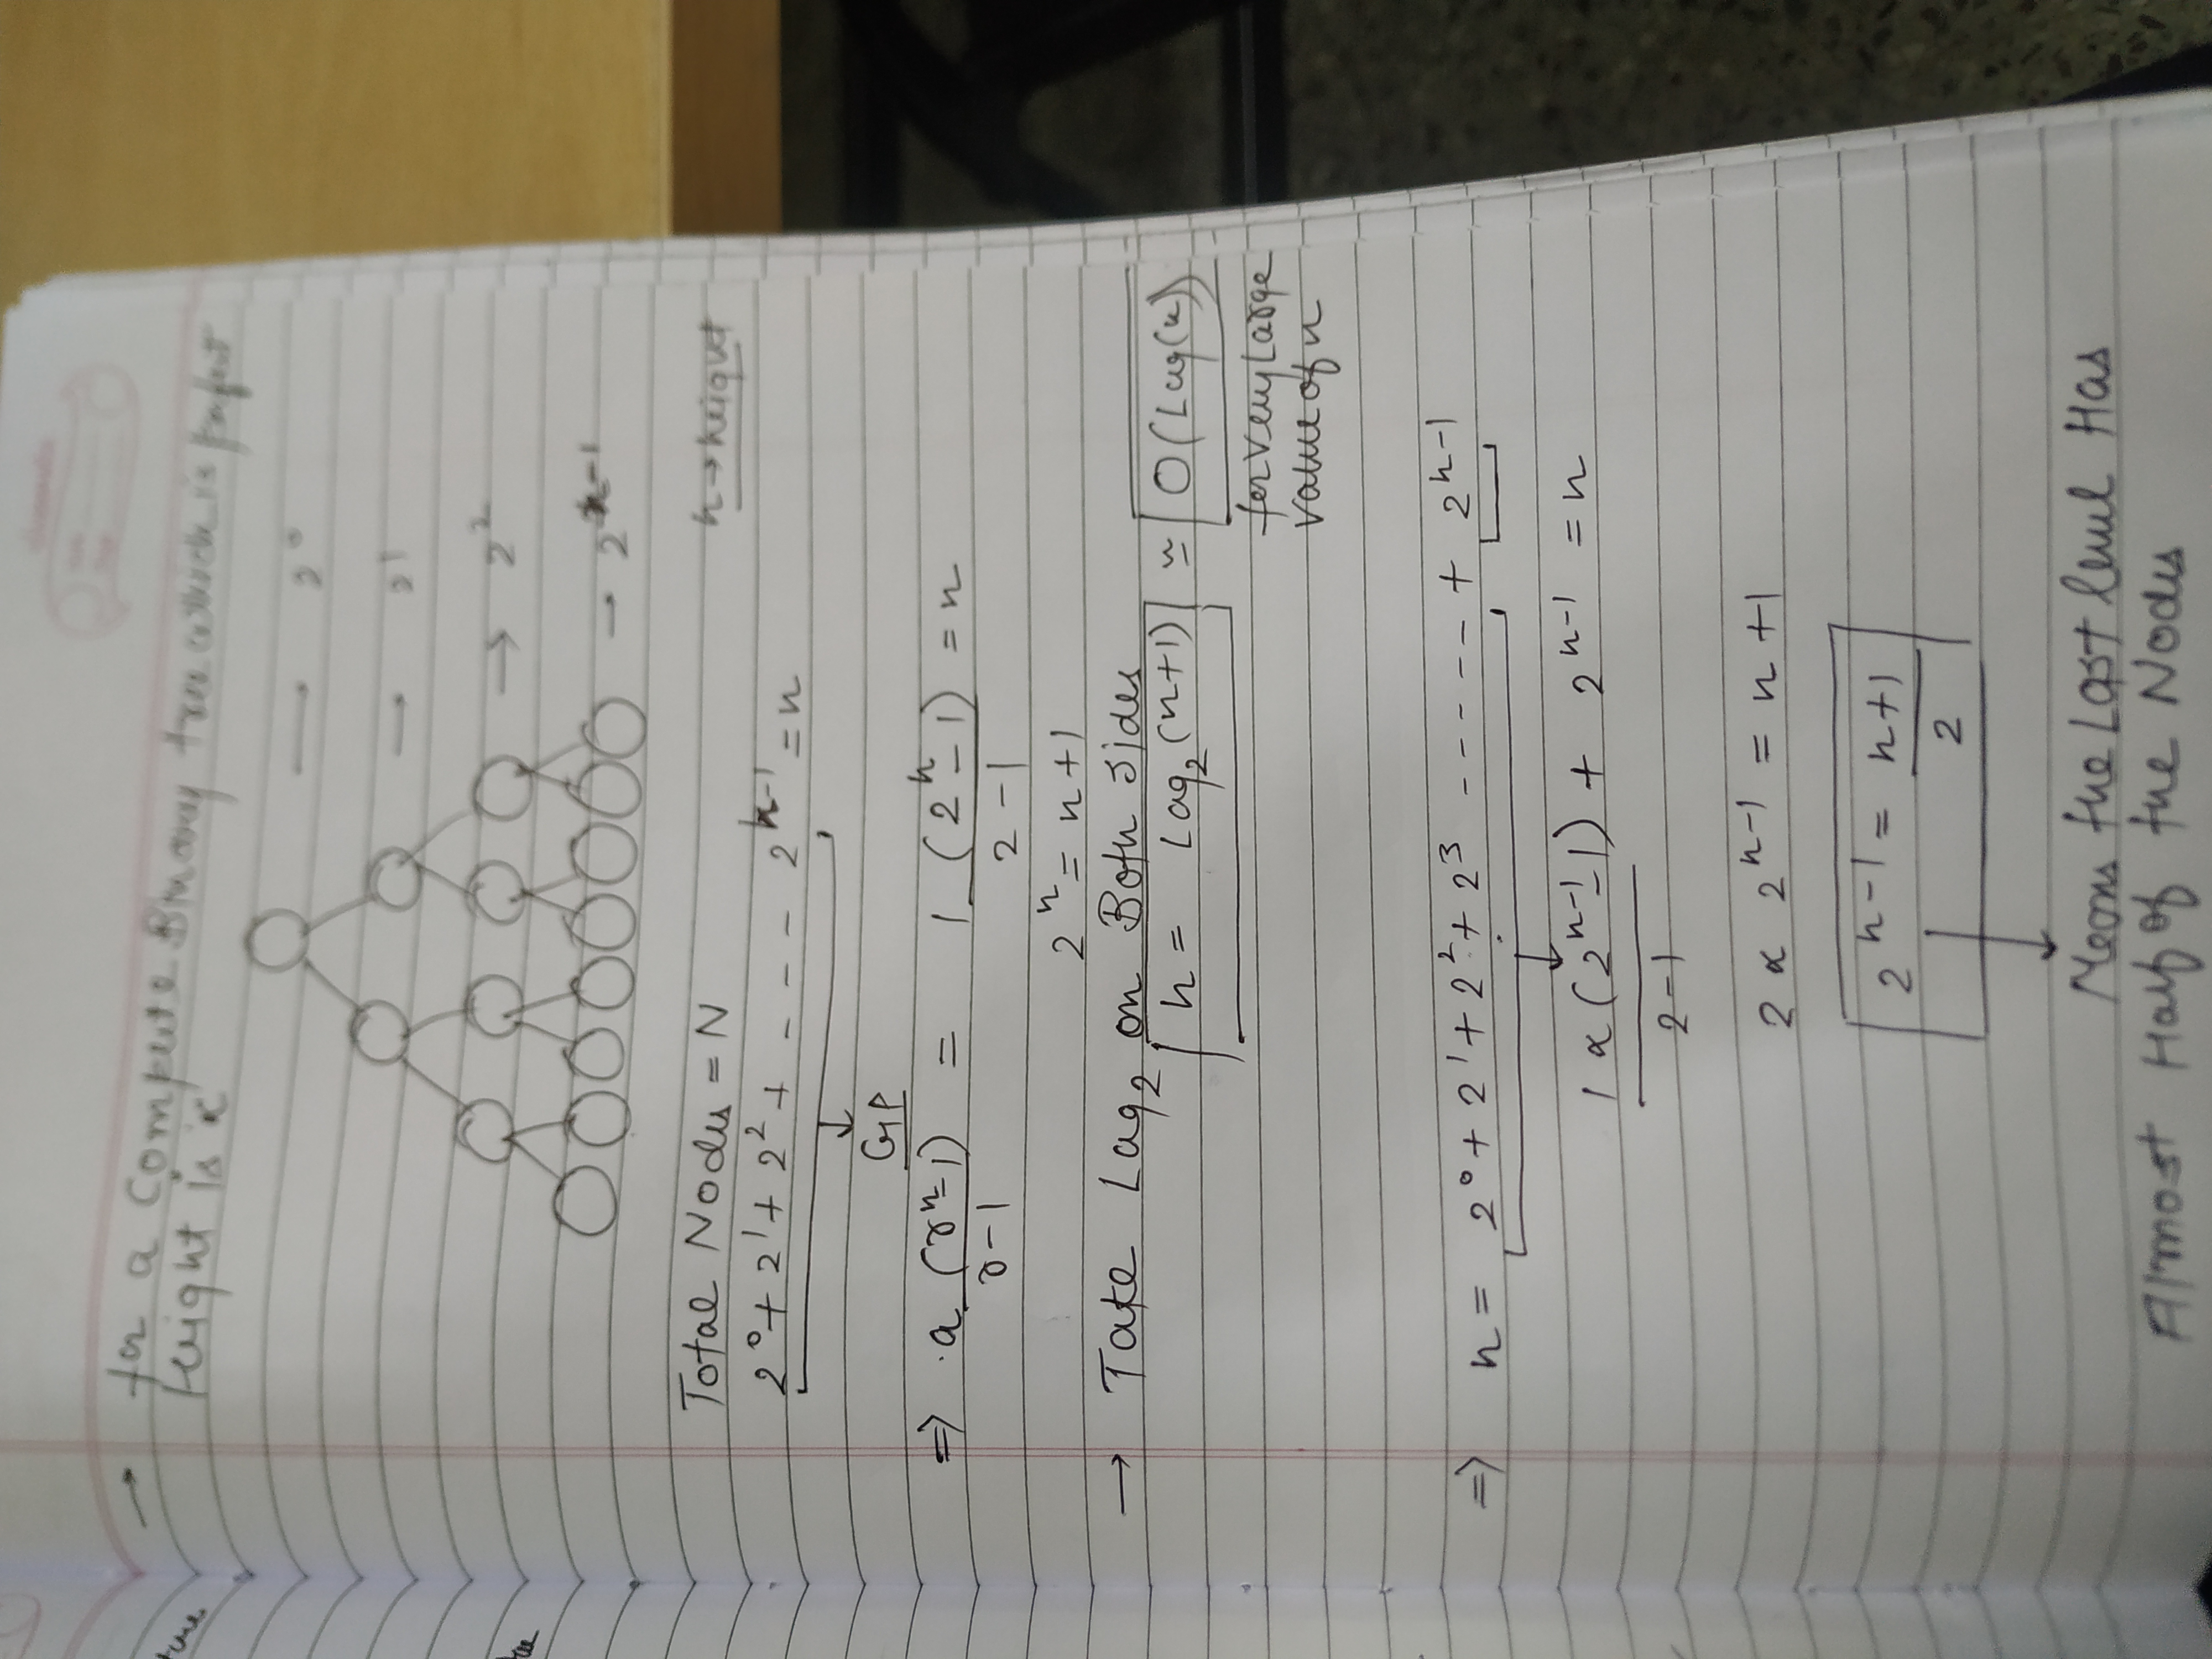 → for a Complete Binary tree which is perfect
height is x
→ 2⁰
→ 2¹
→ 2²
→ 2^h-1
Total Nodes = N
h → height
2⁰ + 2¹ + 2² + - - - - 2^h-1 = n
GP
⇒ a (r^n - 1) / r - 1 = 1 (2^h - 1) / 2 - 1 = n
2^h = n + 1
→ Take Log₂ on Both sides
h = Log₂ (n+1) ≃ O(Log(n))
for very Large
value of n
⇒ n = 2⁰ + 2¹ + 2² + 2³ - - - - - + 2^h-1
1 x (2^h-1 - 1) / 2 - 1 + 2^h-1 = n
2 x 2^h-1 = n + 1
2^h-1 = n+1 / 2
Means the Last level Has
Almost Half of the Nodes